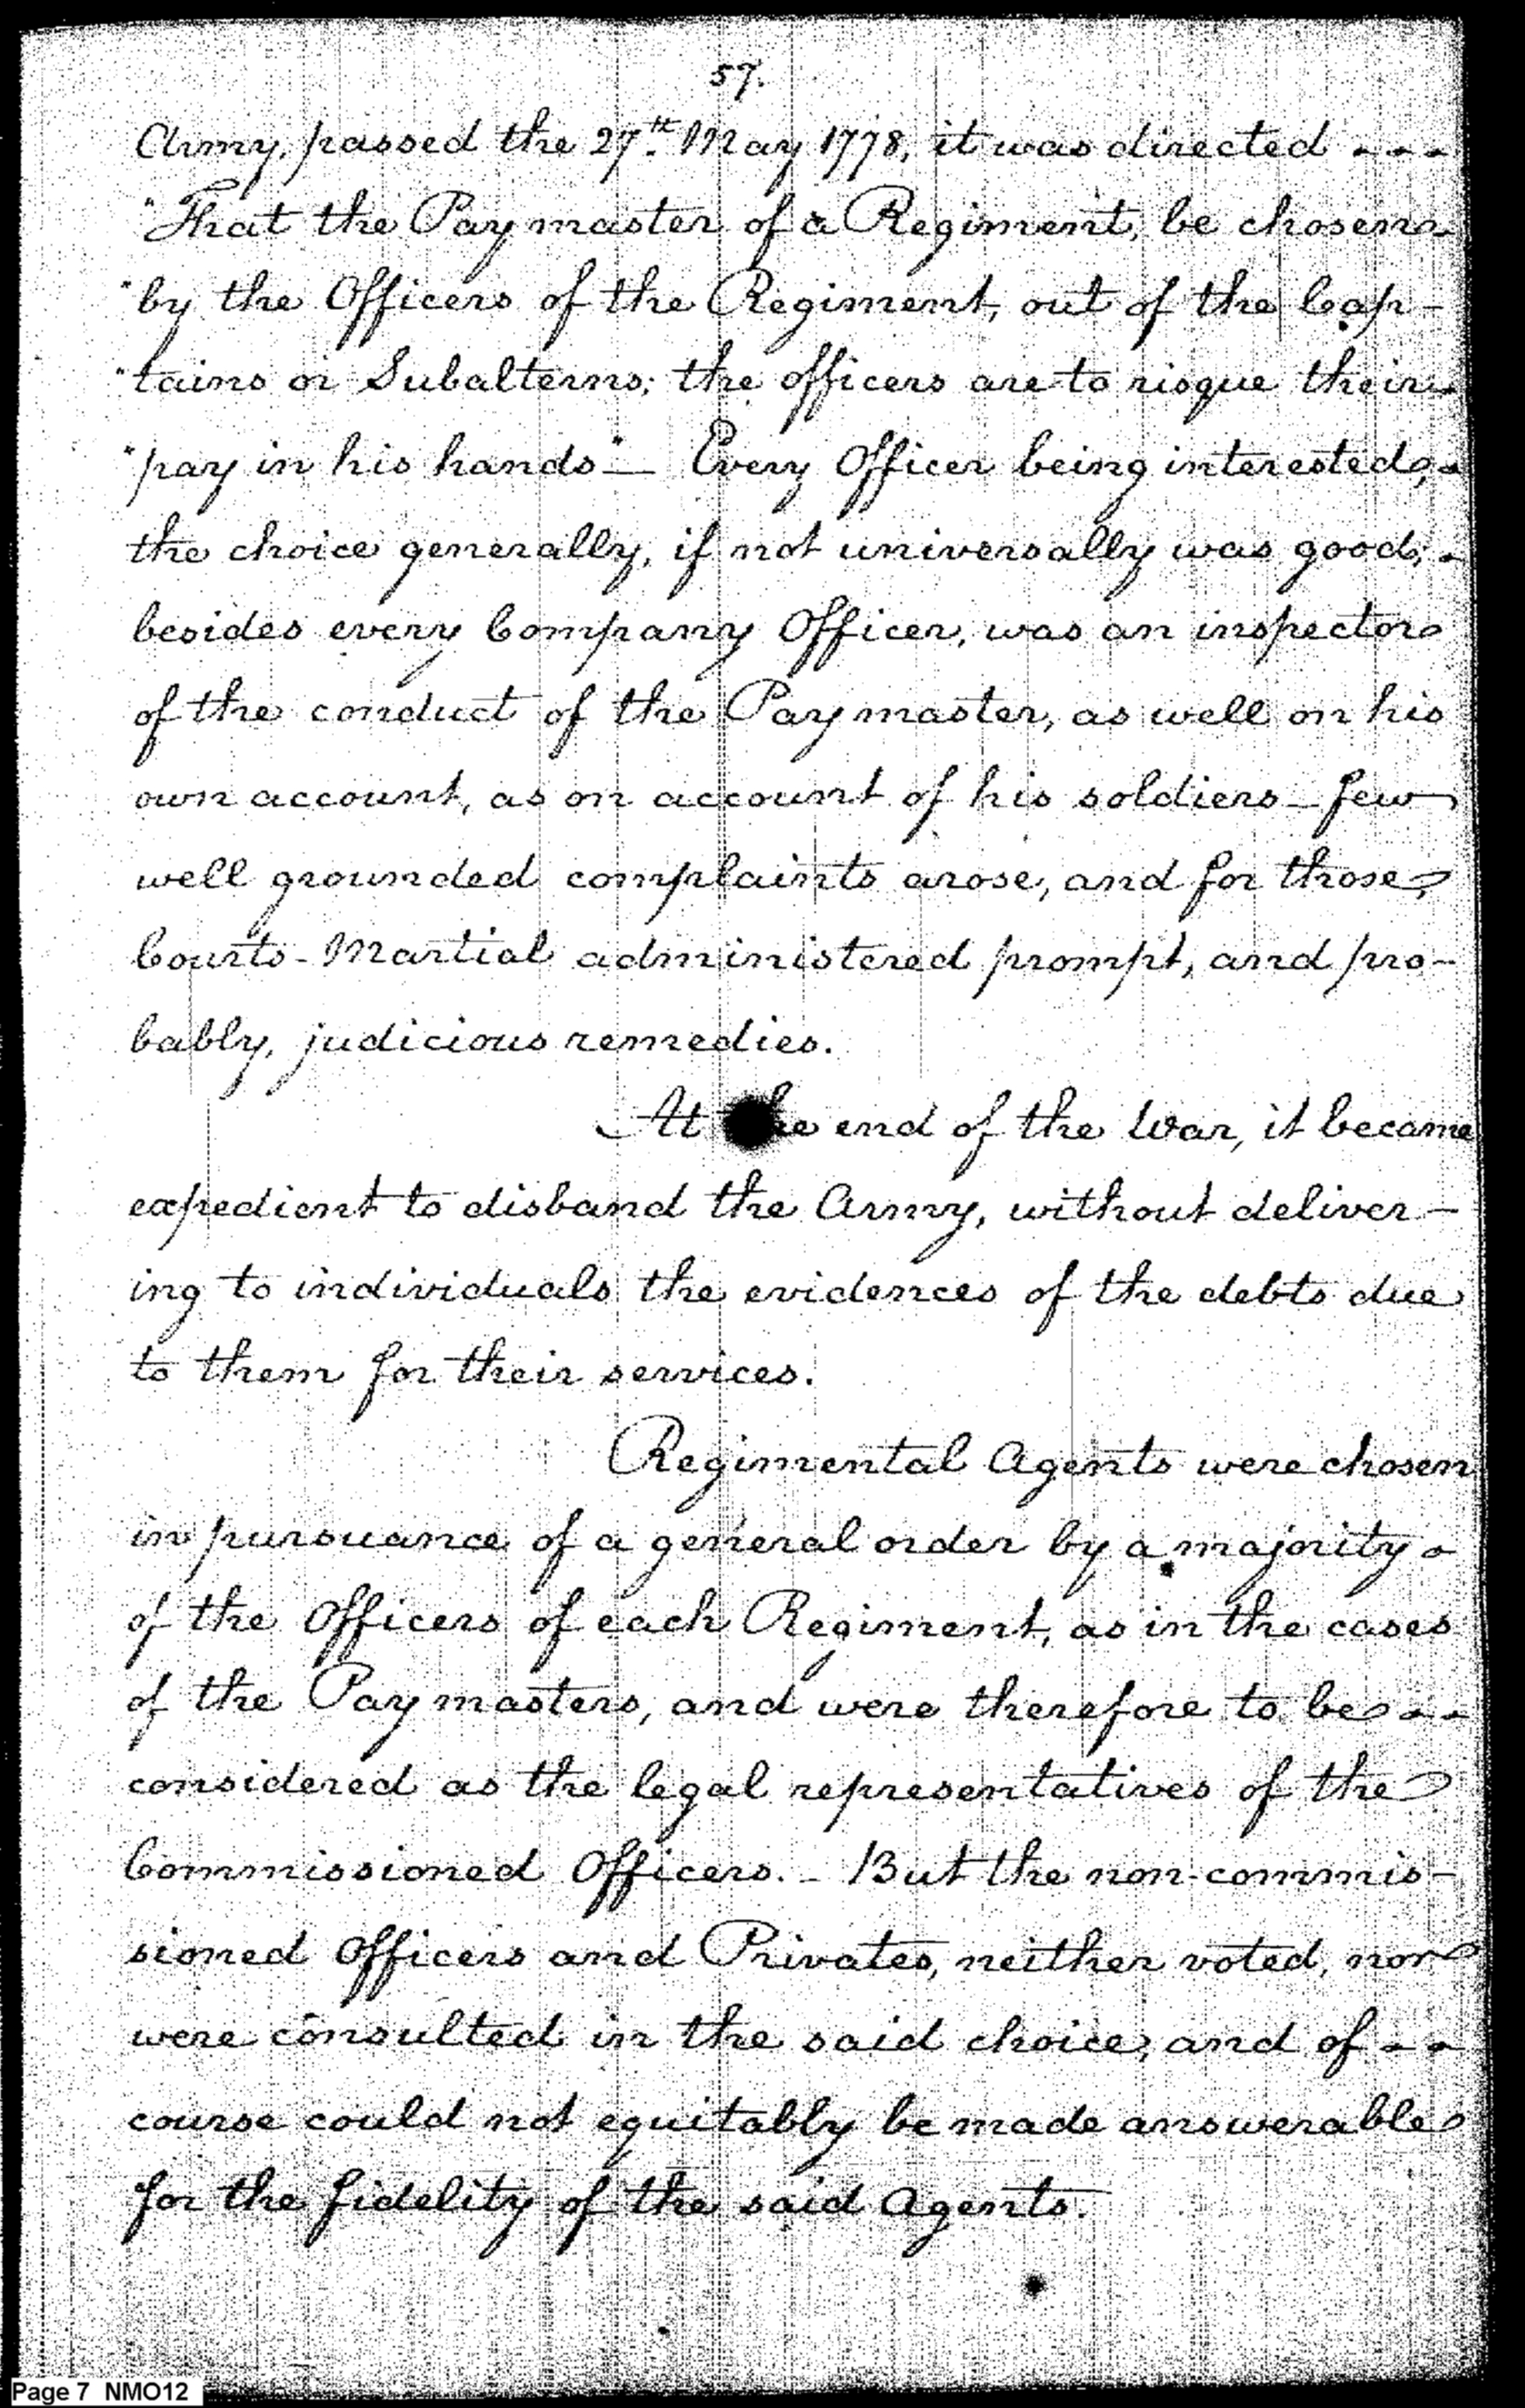 57.
Army, passed the 27th May 1778, it was directed - - -
"That the Paymaster of a Regiment, be chosen
"by the Officers of the Regiment, out of the Cap-
"tains or Subalterns; the officers are to risque their
"pay in his hands" — Every Officer being interested,
the choice generally, if not universally was good;
besides every Company Officer, was an inspector
of the conduct of the Paymaster, as well on his
own account, as on account of his soldiers – few
well grounded complaints arose, and for those,
Courts-Martial administered prompt, and pro-
bably, judicious remedies.
At he end of the War, it became
expedient to disband the Army, without deliver-
ing to individuals the evidences of the debts due
to them for their services.
Regimental Agents were chosen
in pursuance of a general order by a majority
of the Officers of each Regiment, as in the cases
of the Paymasters, and were therefore to be - -
considered as the legal representatives of the
Commissioned Officers. – But the non-commis-
sioned Officers and Privates, neither voted, nor
were consulted in the said choice, and of - -
course could not equitably be made answerable
for the fidelity of the said Agents.
Page 7 NMO12